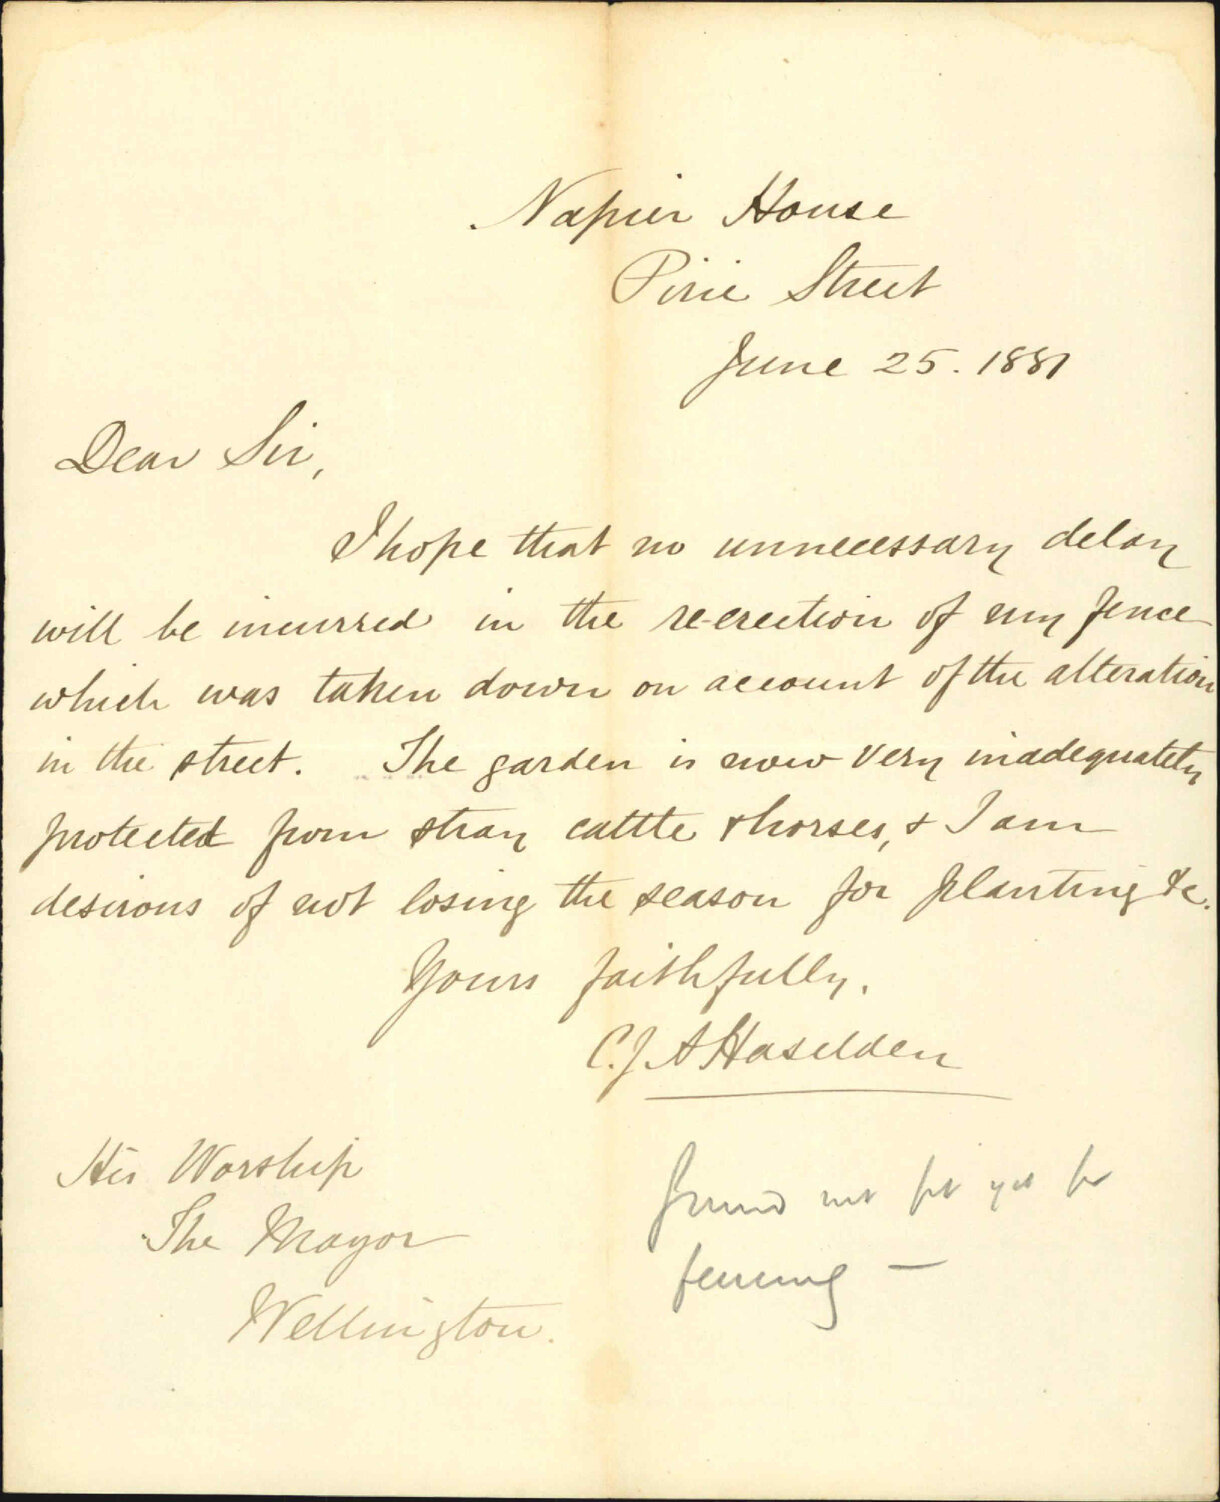 Napier House
Pirie Street
June 25. 1881
Dear Sir,
I hope that no unnecessary delay
will be incurred in the re-erection of my fence
which was taken down on account of the alteration
in the street. The garden is now very inadequately
protected from stray cattle & horses, & I am
desirous of not losing the season for planting &c.
Yours faithfully,
C. J. A Haselden
His Worship
The Mayor
Wellington.
Ground not fit yet for
fencing —